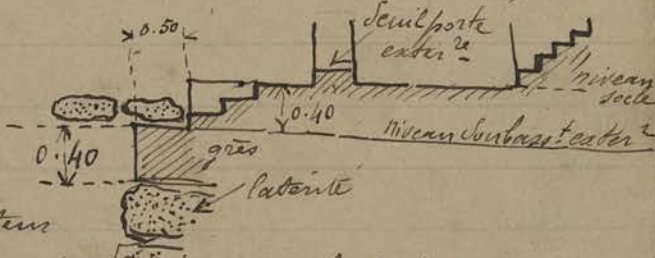 0.50
Seuil porte
exter re
niveau
socle
0.40
niveau Soubasst exter r
0.40
grès
latérite
teur